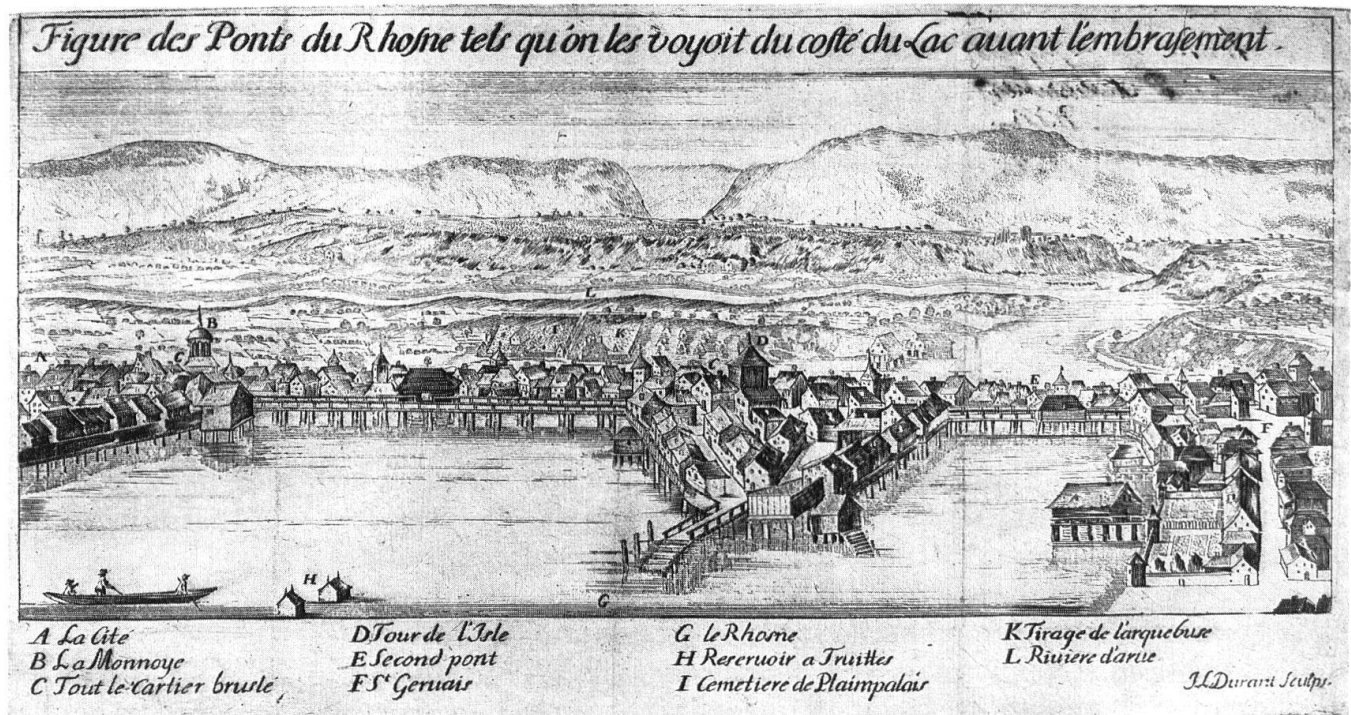 Figure des Ponts du Rhosne tels qu'on les voyoit du costé du Lac auant l'embrasement.
L
B
A
C
I
K
C
D
E
F
H
G
A La Cité
B La Monnoye
C Tout le Cartier bruslé
D Tour de l'Isle
E Second pont
F St Geruais
G le Rhosne
H Reseruoir a Truittes
I Cemetiere de Plaimpalais
K Tirage de l'arquebuse
L Riuiere d'arue
I.L. Durant Sculps.